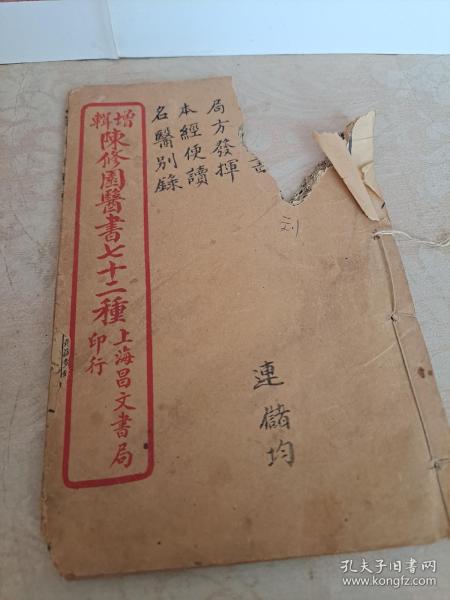 局方發揮
本經便讀
名醫別錄
增輯
陳修園醫書七十二種
上海昌文書局
印行
連儲均
孔夫子旧书网
www.kongfz.com